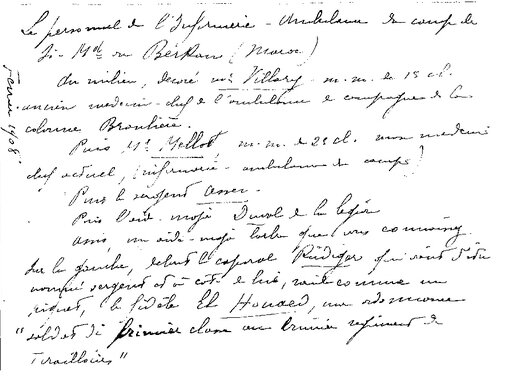 Le personnel de l'Infirmerie - Ambulance du camp de
Si-Med du Berkan (Maroc)
Au milieu, décoré Villary m.m. de 1e cl.
ancien médecin-chef de l'ambulance de campagne de la
colonne Branlière.
Puis Mr Mellot, m.m. de 2e cl. mon médecin
chef actuel, (infirmerie - ambulance du camp)
Puis le sergent Asser.
Puis l'aide-major Duval de la légion
Assis, un aide-major
Sur la gauche, debout le caporal Rudiger qui vient d'être
nommé sergent et à côté de lui, raide comme un
piquet, le fidèle El Houaed, mon ordonnance
"soldat di première classe au premier régiment de
Tirailloirs"
Février 1908